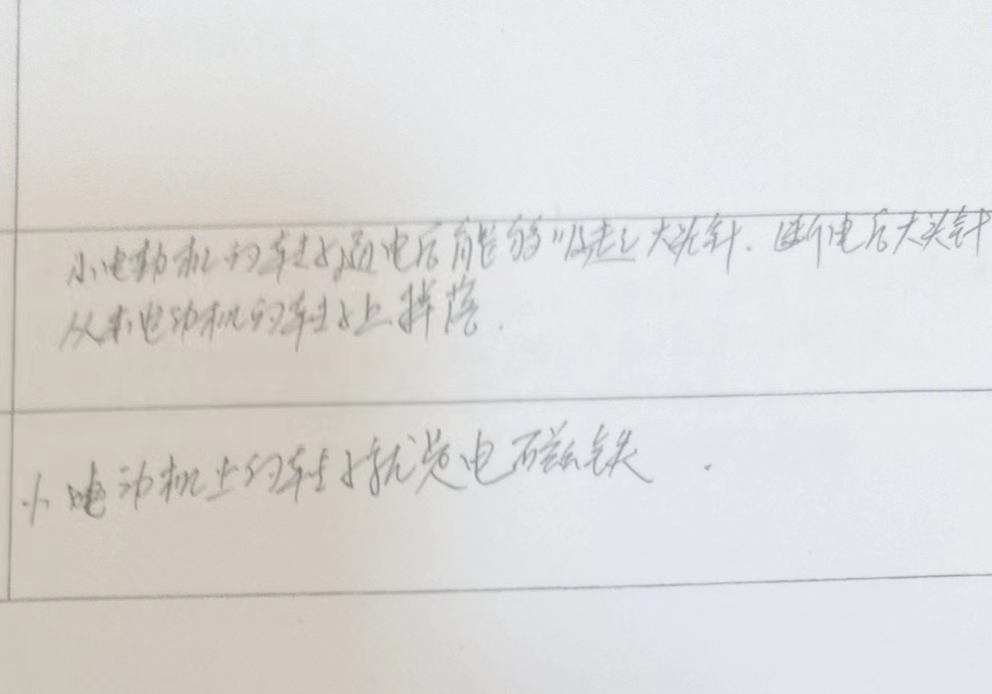 小电动机的转子通电后能够吸起大头针.断电后大头针
从小电动机的转子上掉落.
小电动机上的转子就是电磁铁.